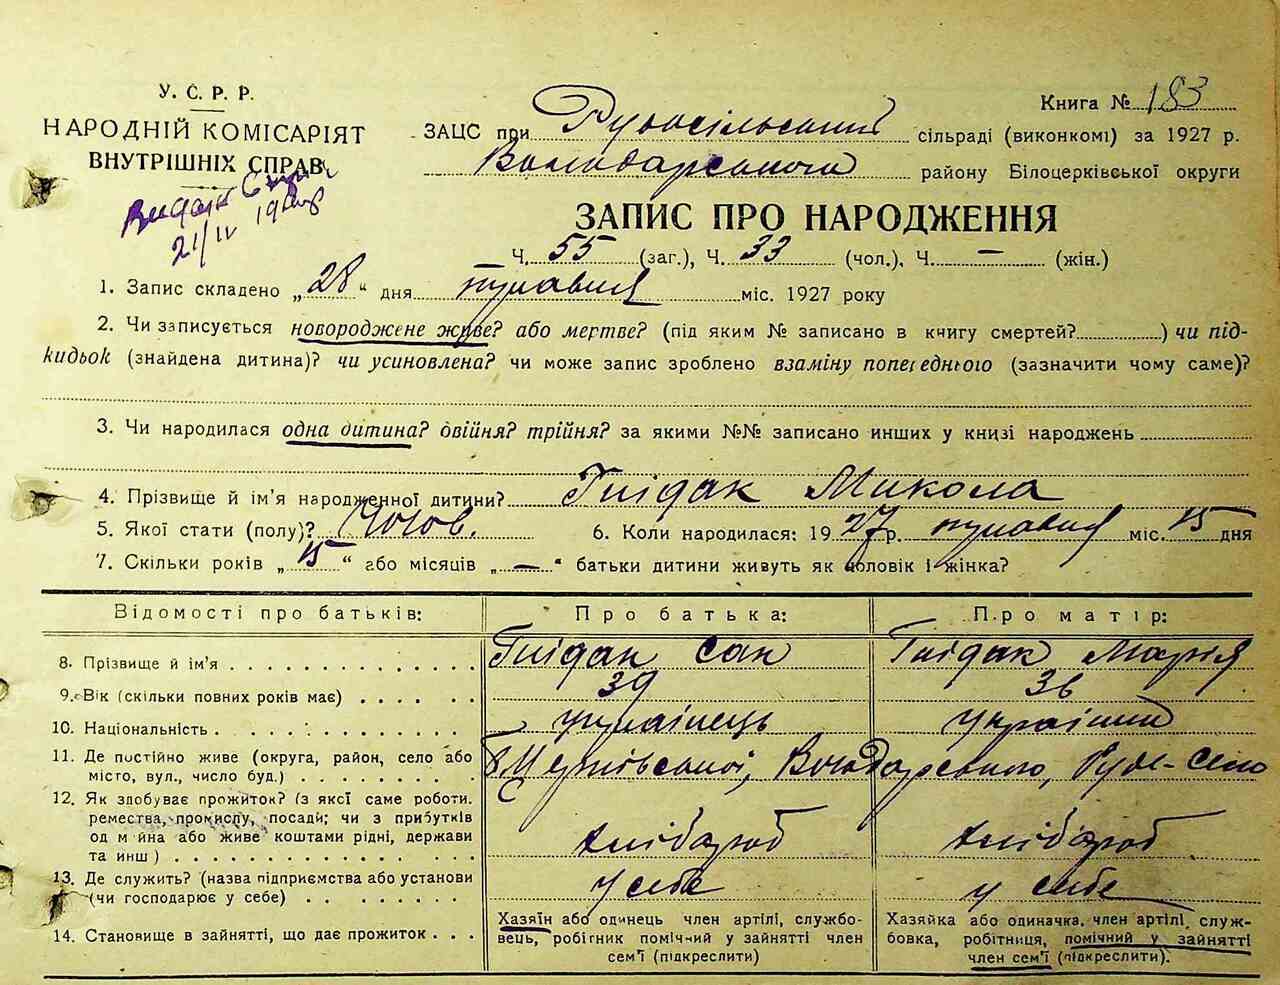 У. С. Р. Р.
НАРОДНІЙ КОМІСАРІЯТ
ВНУТРІШНІХ СПРАВ
21/IV
Книга № 183
ЗАЦС при Рудосільський сільраді (виконкомі) за 1927 р.
Володарського району Білоцерківської округи
ЗАПИС ПРО НАРОДЖЕННЯ
Ч. 55 (заг.), Ч. 33 (чол.), Ч. — (жін.)
1. Запис складено „28“ дня міс. 1927 року
2. Чи записується новороджене живе? або мертве? (під яким № записано в книгу смертей?) чи під-
кидьок (знайдена дитина)? чи усиновлена? чи може запис зроблено взаміну попереднього (зазначити чому саме)?
3. Чи народилася одна дитина? двійня? трійня? за якими №№ записано инших у книзі народжень
4. Прізвище й ім'я народженної дитини? Гнідак Микола
5. Якої стати (полу)? Чолов. 6. Коли народилася: 1927 р. міс. 15 дня
7. Скільки років „15“ або місяців „—“ батьки дитини живуть як чоловік і жінка?
Відомості про батьків: Про батька: Про матір:
8. Прізвище й ім'я Гнідак Сак Гнідак Марія
9. Вік (скільки повних років має) 39 36
10. Національність українець
11. Де постійно живе (округа, район, село або
місто, вул., число буд.) Б.Церківської, Володарського, Руде-Село
12. Як здобуває прожиток? (з якої саме роботи.
ремества, промислу, посади; чи з прибутків
од майна або живе коштами рідні, держави
та инш) хлібороб хлібороб
13. Де служить? (назва підприємства або установи
(чи господарює у себе) у себе у себе
14. Становище в зайнятті, що дає прожиток
Хазяїн або одинець член артілі, службо-
вець, робігник помічний у зайнятті член
сем'ї (підкреслити)
Хазяйка або одиначка, член артілі, служ-
бовка, робітниця, помічний у зайнятті
член сем'ї (підкреслити).